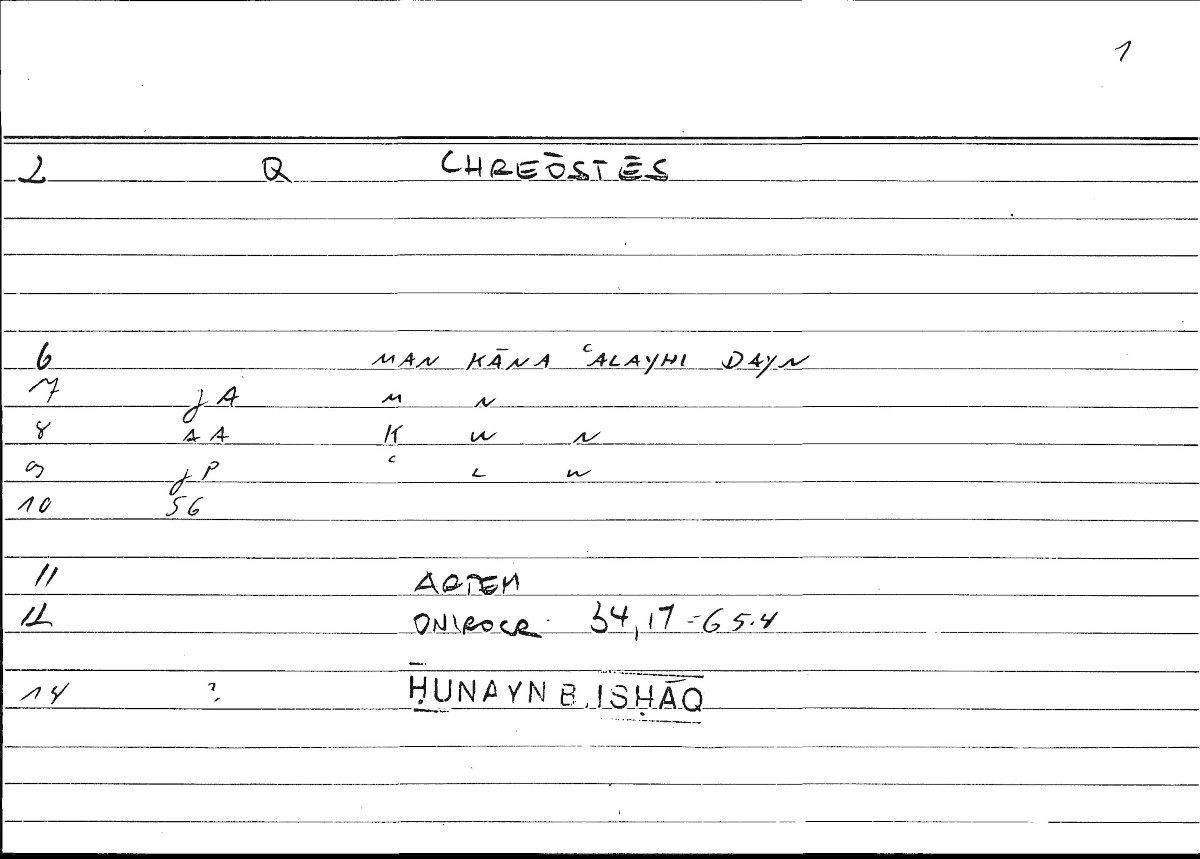 1
2 Q CHREŌSTĒS
6 MAN KĀNA ʿALAYHI DAYN
7 jA M N
8 AA K W N
9 jP ʿ L W
10 56
11 ARTEM
12 ONIROCR. 34,17 = 65.4
14 ? ḤUNAYN B. ISḤĀQ